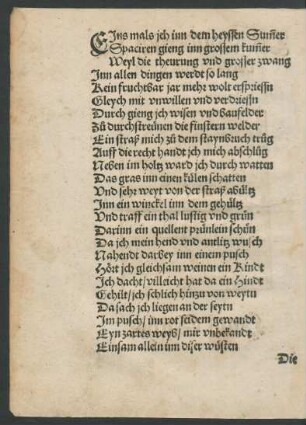 EJns mals jch inn dem heyssen Sum̃er
Spaciren gieng inn grossem kum̃er
Weyl die theurung vnd grosser zwang
Jnn allen dingen werdt so lang
Kein fruchtbar jar mehr wolt ersprießn
Gleych mit vnwillen vnd verdrießn
Durch gieng jch wisen vnd baufelder
Zů durchstreunen die finstern welder
Ein straß mich zů dem staynbruch trůg
Auff die recht handt jch mich abschlůg
Neben im holtz ward jch durch watten
Das gras inn einen kůlen schatten
Vnd sehr weyt von der straß abůltz
Jnn ein winckel inn dem gehůltz
Vnd traff ein thal lustig vnd grün
Darinn ein quellent prünlein schön
Da jch mein hend vnd antlitz wusch
Nahendt darbey inn einem pusch
Hört jch gleichsam weinen ein Kindt
Jch dacht/ villeicht hat da ein Hindt
Gehilt/ jch schlich hinzu von weytn
Da sach jch liegen an der seytn
Jm pusch/ inn rot seidem gewandt
Eyn zartes weyb/ mir vnbekandt
Einsam allein inn diser wůsten
Die